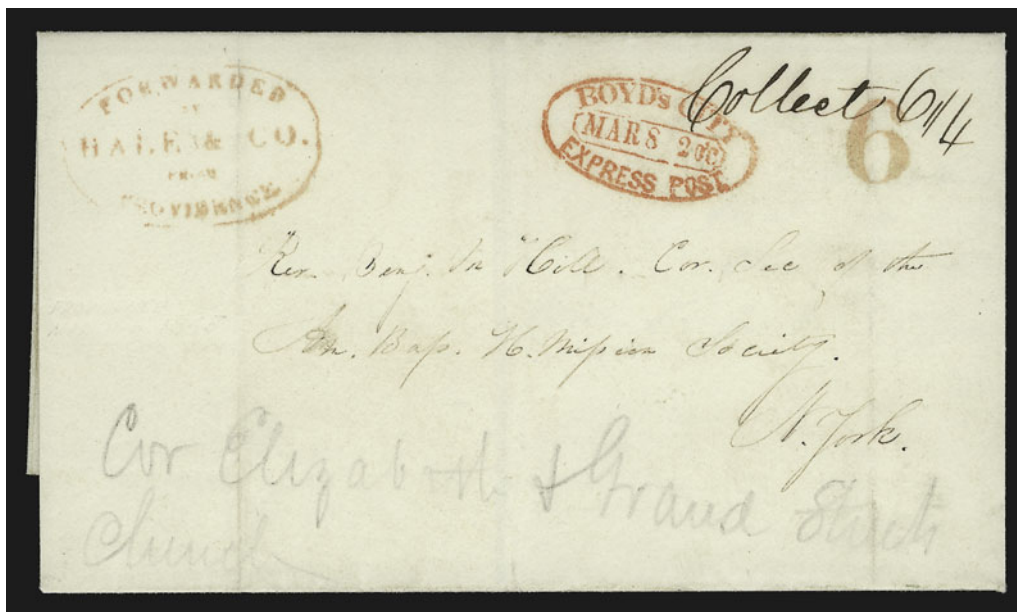 FORWARDED
BY
HALE & CO.
FROM
PROVIDENCE
BOYD's CITY
MAR 8 2 o'C
EXPRESS POST.
Collect 6 1/4
6
Rev. Benj. M Hill. Cor. Sec of the
Am. Bap. H. Mission Society.
N. York.
Cor Elizabeth & Grand Streets
Church